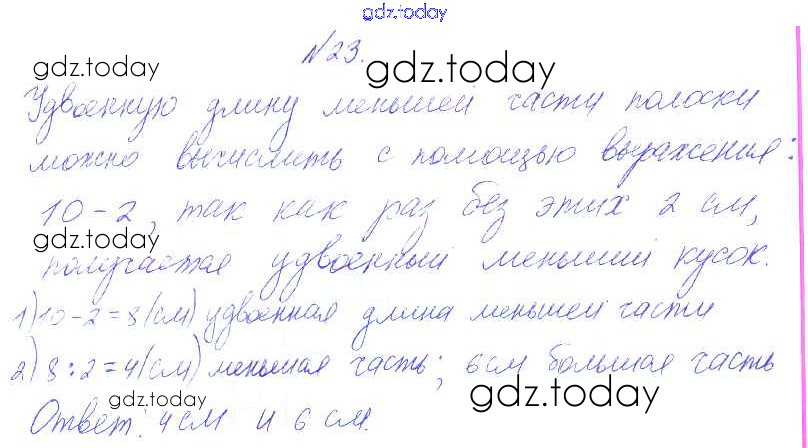 gdz.today
№23.
gdz.today gdz.today
Удвоенную длину меньшей части полоски
можно вычислить с помощью выражения:
10-2, так как раз без этих 2 см,
gdz.today gdz.today
получается удвоенный меньший кусок.
1) 10-2=8(см) удвоенная длина меньшей части
gdz.today
2) 8:2=4(см) меньшая часть; 6см большая часть
gdz.today gdz.today
Ответ: 4см и 6 см.